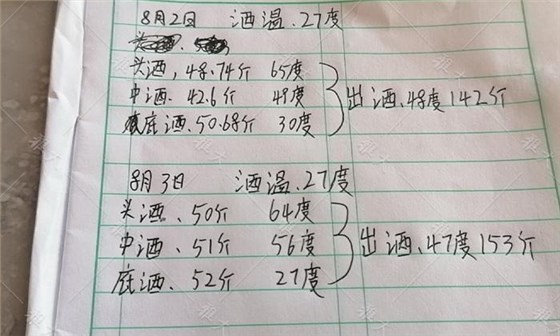 8月2日 酒温.27度
头酒,48.74斤 65度
中酒.42.6斤 48度
底酒.50.68斤 30度
出酒.48度142斤
8月3日 酒温.27度
头酒.50斤 64度
中酒.51斤 56度
底酒.52斤 27度
出酒.47度153斤